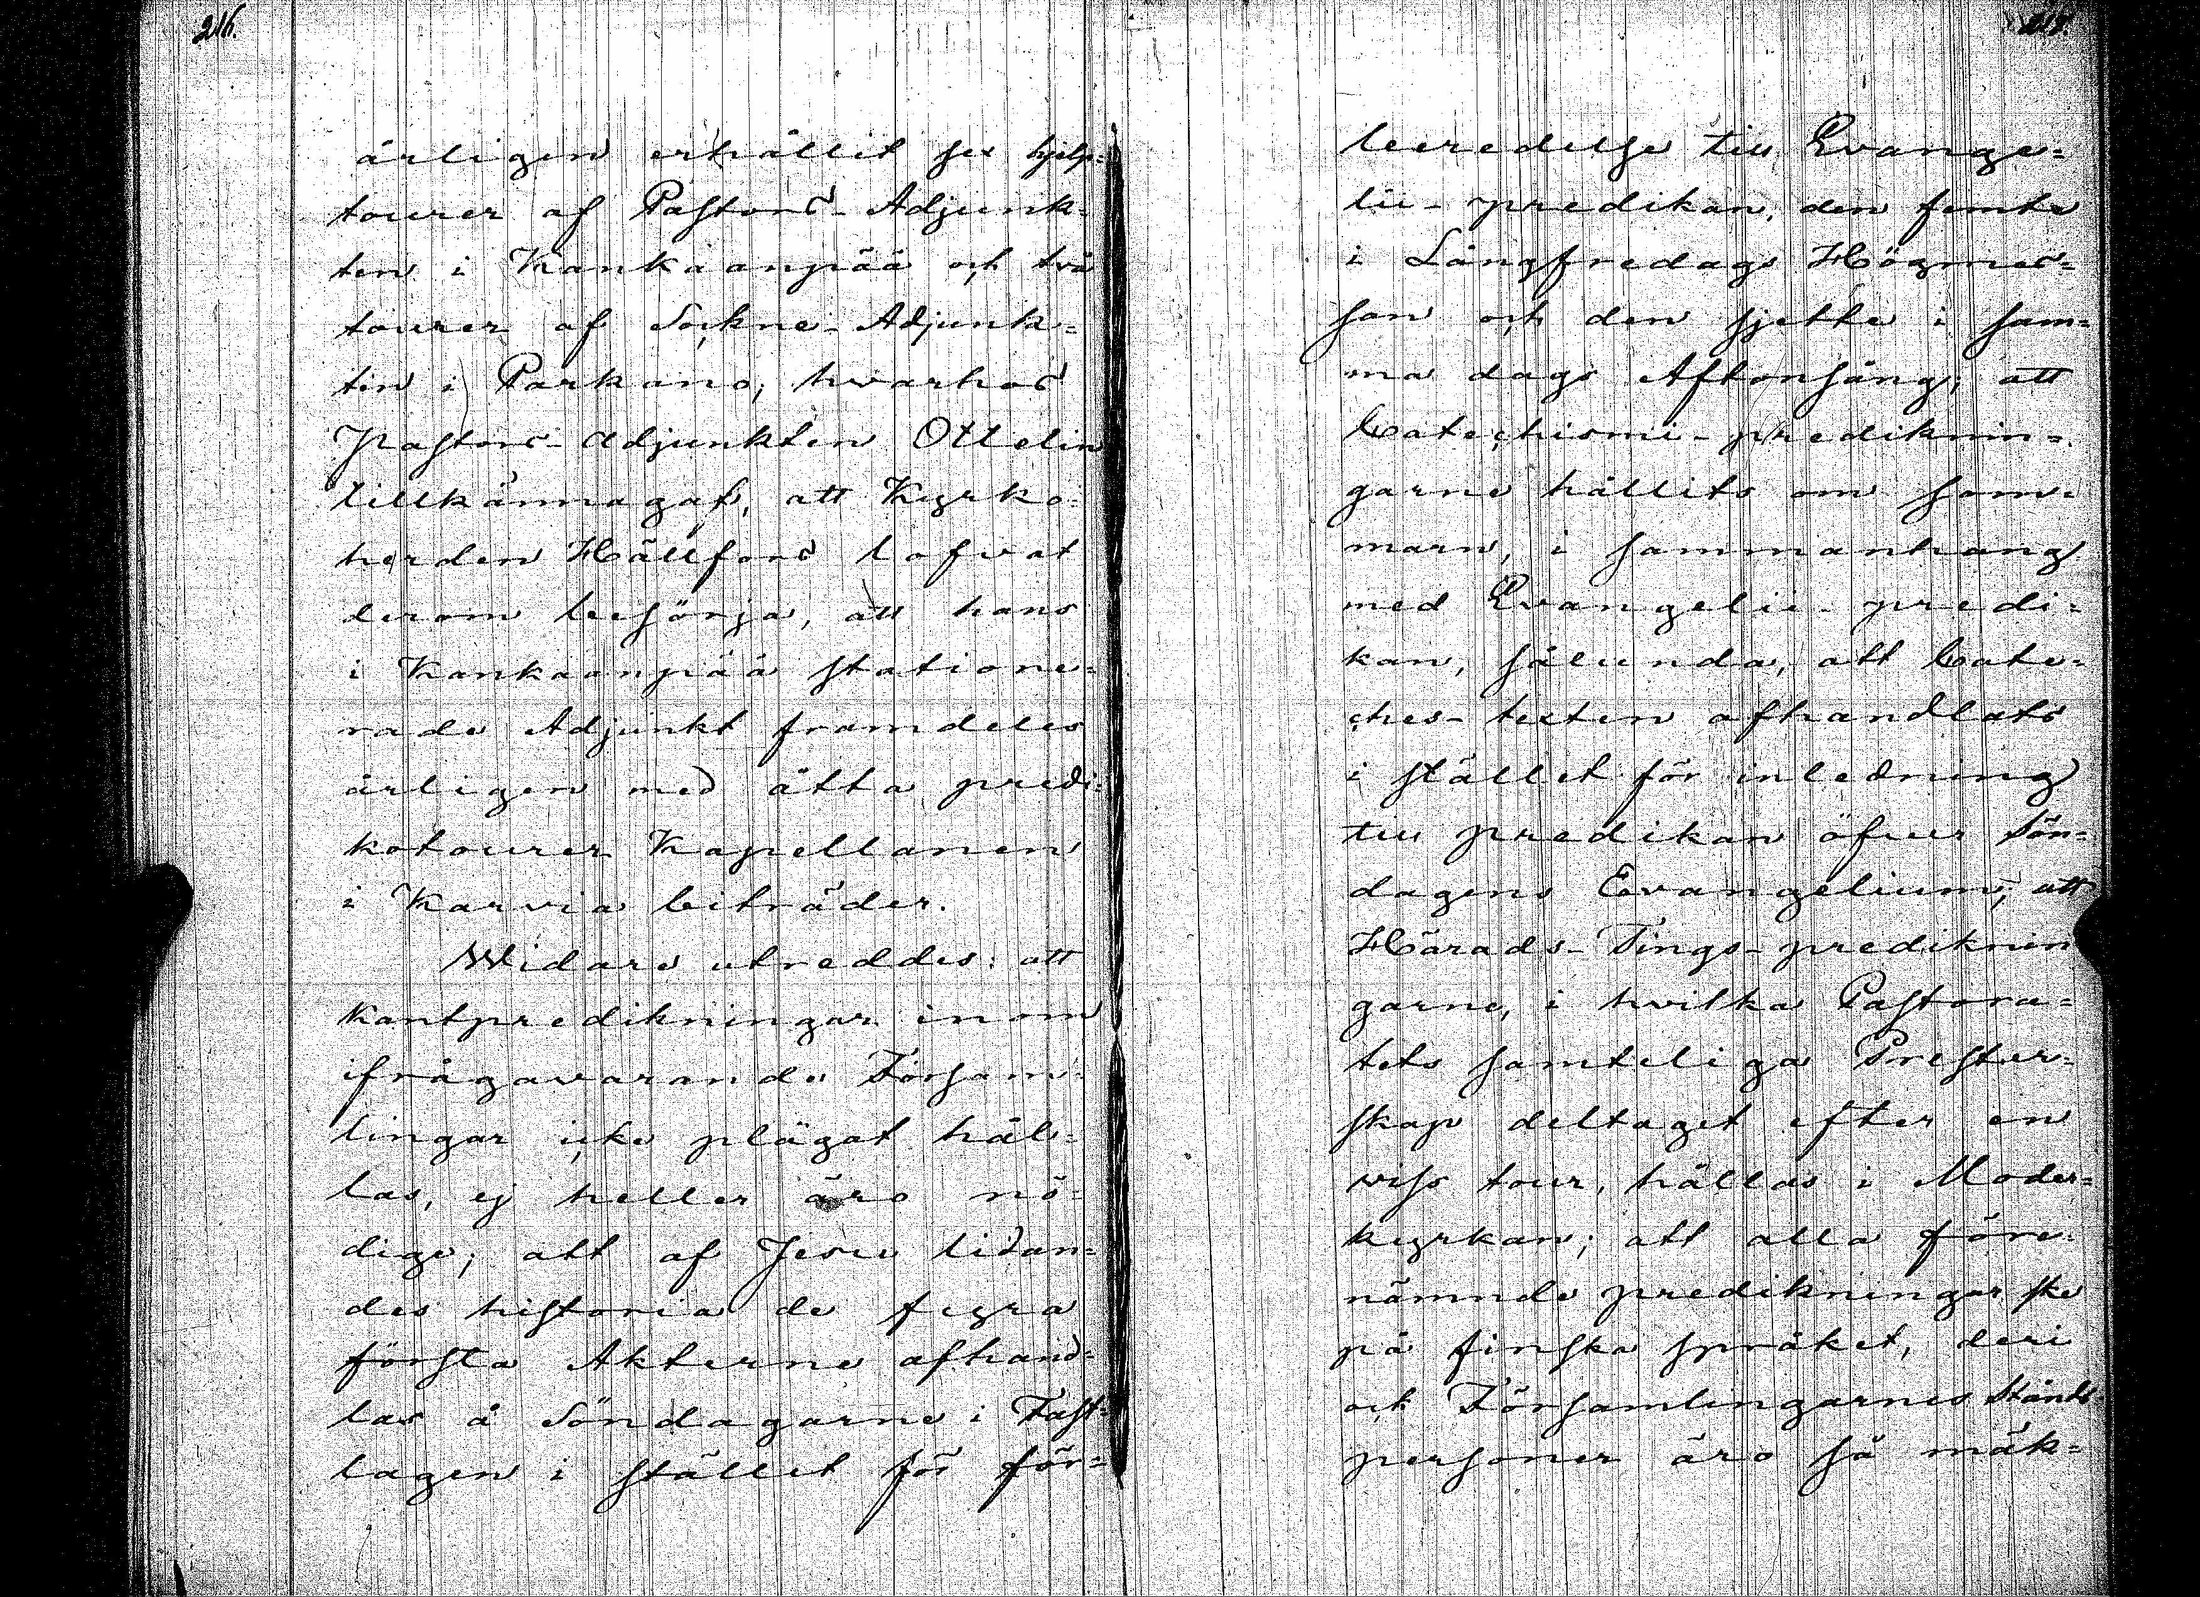 216.
årligen erhållit sex hjelp=
tourer af Pastors-Adjunk=
ten i Kankaanpää och två
tourer af Sockne-Adjunk=
ten i Parkano, hvarhos
Pastors-adjunkten Ottelin
tillkännagaf, att Kyrko=
herden Hällfors lofvat
derom besörja, att hans
i Kankaanpää statione=
rade Adjunkt framdeles
årligen med åtta predi=
kotourer Kapellanen
i Karvia biträder.
Widare utreddes: att
Kantpredikningar inom
ifrågavarande Försam=
lingar icke plägat hål=
las, ej heller äro nö=
dige; att af Jesu lidan=
des historia de fyra
första Akterne afhand=
las å Söndagarne i Fast=
lagen i stället för för=
beredelse till Evange=
lii-predikan, den femte
i Långfredags Högmes=
san och den sjette i sam=
ma dags Aftonsång; att
Catechismi-prediknin=
garne hållits om som=
marn, i sammanhang
med Evangelii-predi=
kan, sålunda, att Cate=
ches-texten afhandlats
i stället för inledning
till predikan öfver Sön=
dagens Evangelium; att
Härads-Tings-prediknin
garne, i hvilka Pastora=
tets samteliga Prester=
skap deltaget efter en
viss tour, hållas i Moder=
kyrkan; att alla före=
nämnde predikningar ske
på finska språket, deri
ock Församlingarnes Stånds
personer äro så mäk=